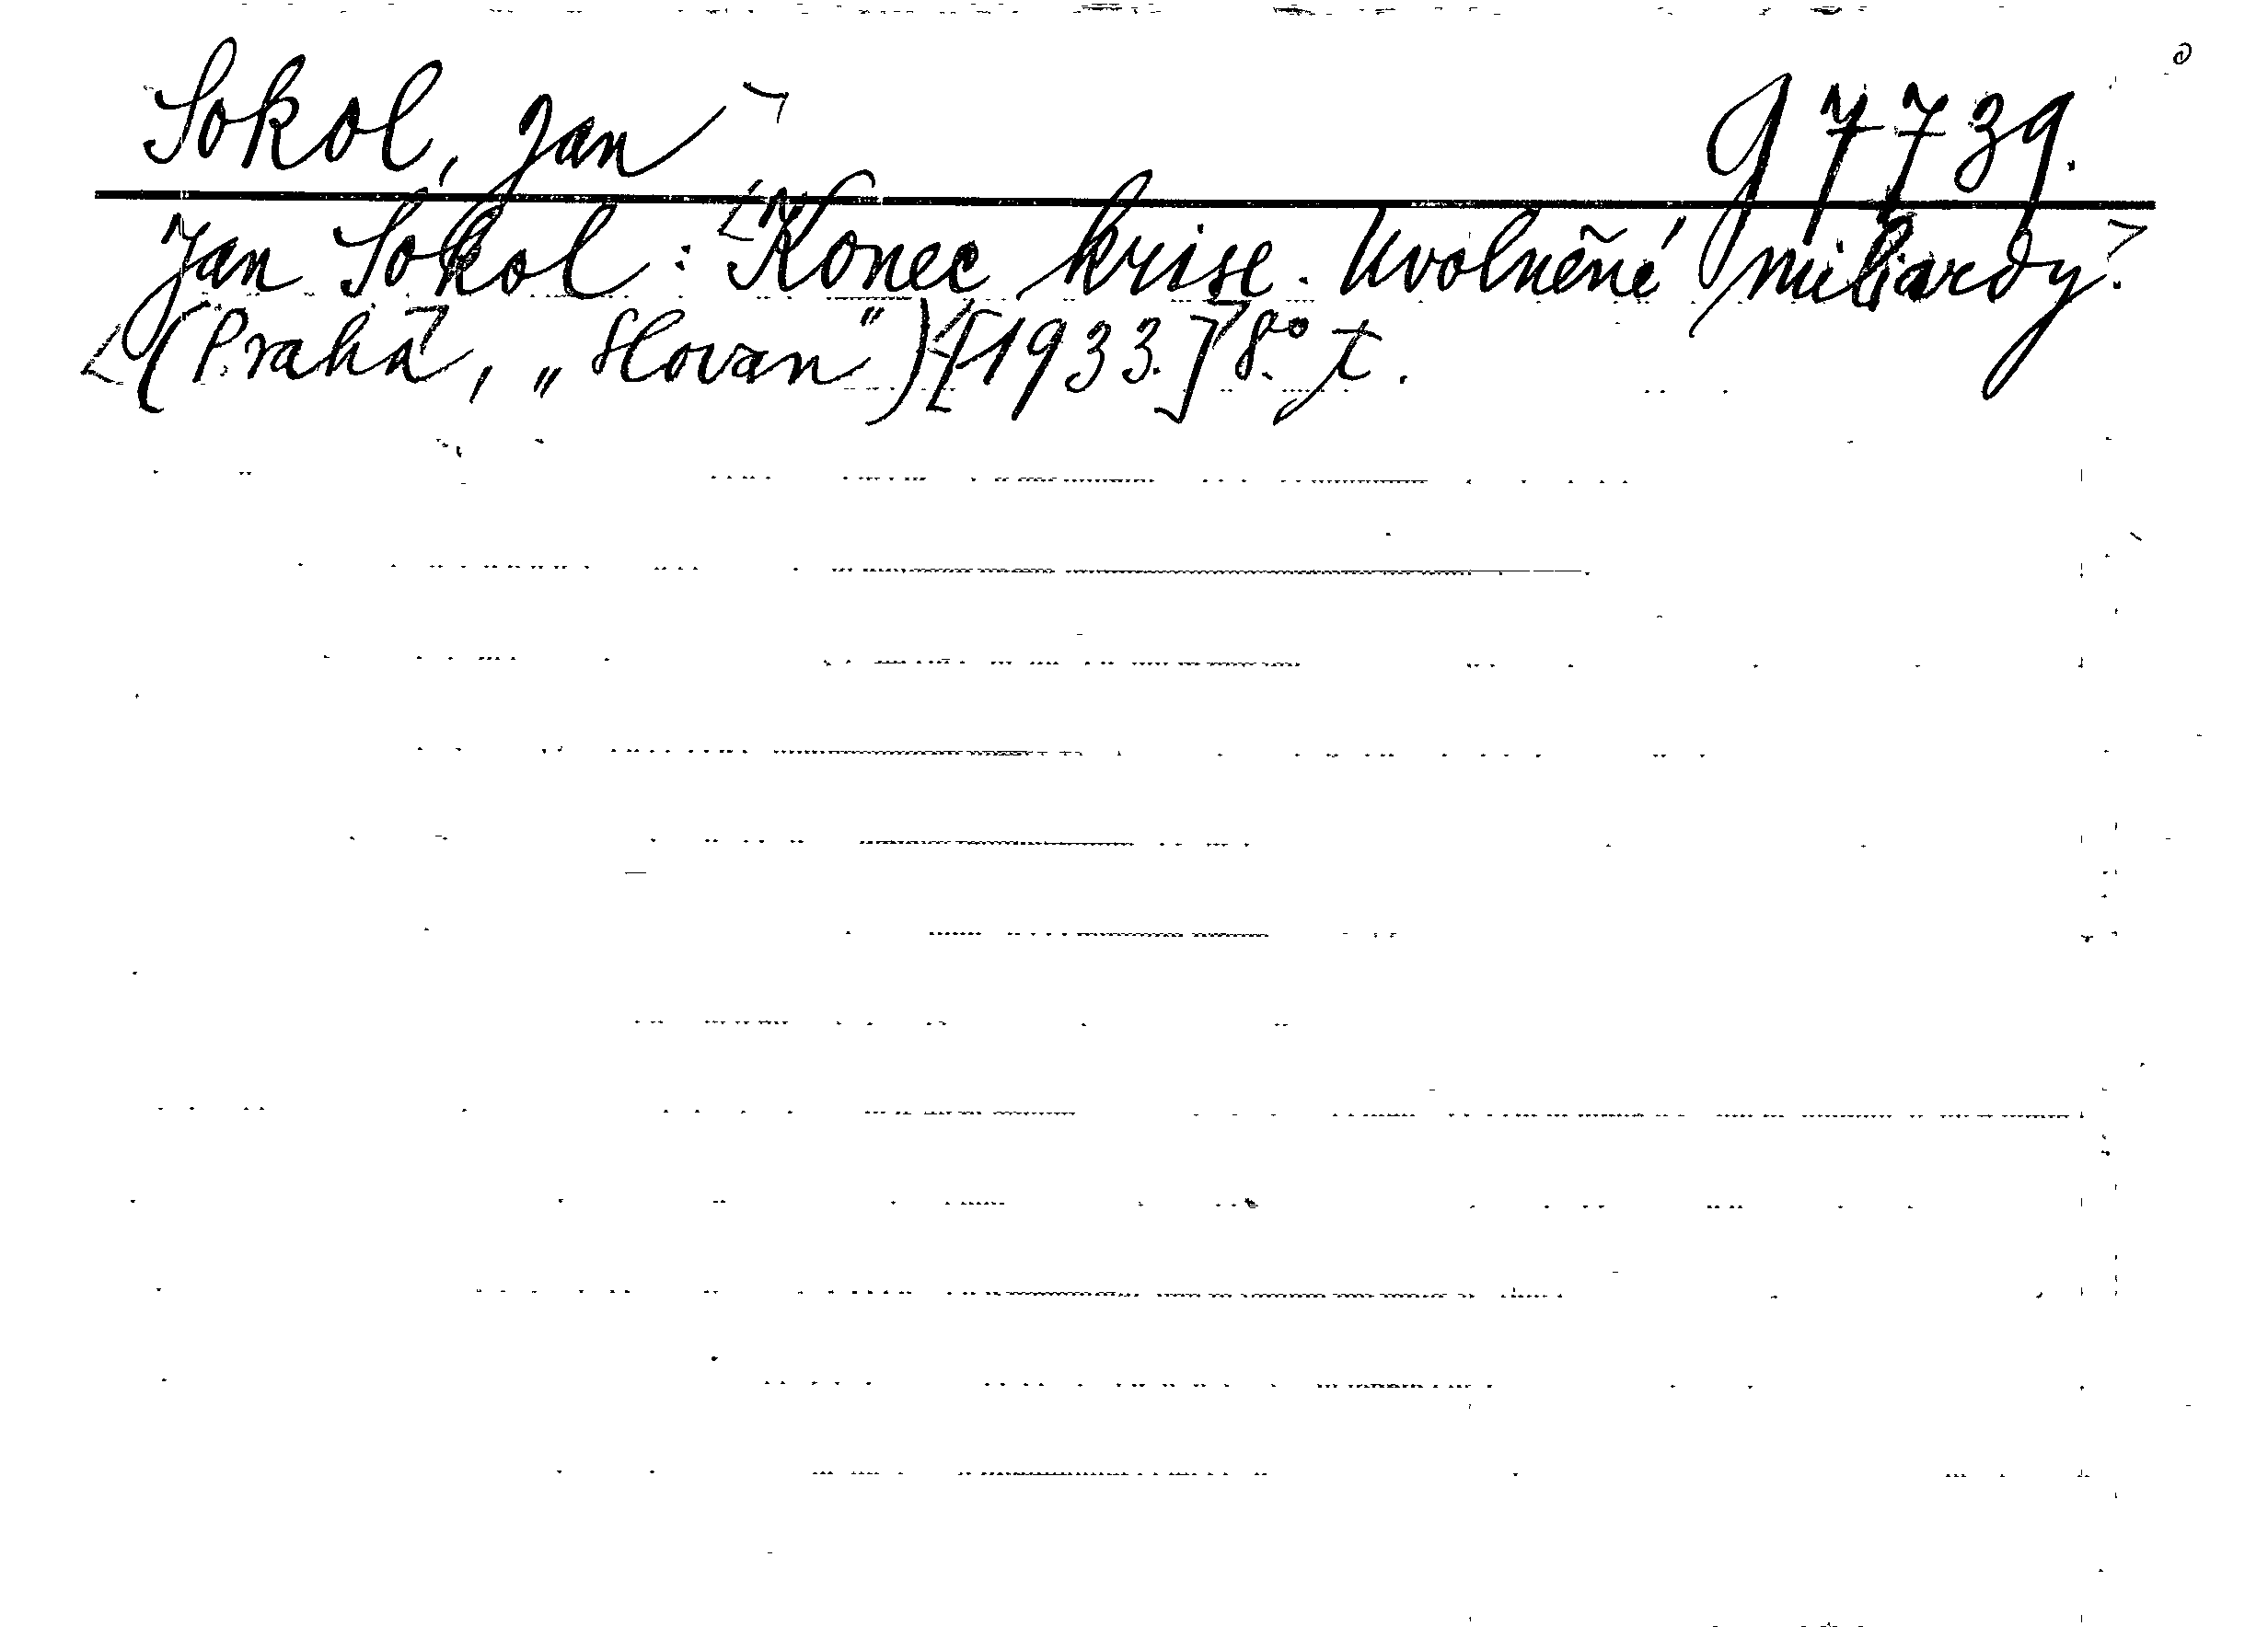 Sokol, Jan g 7739.
Jan Sokol: Konec krise. Uvolněné miliardy.
(Praha, „Slovan") [1933.] 8.° t.